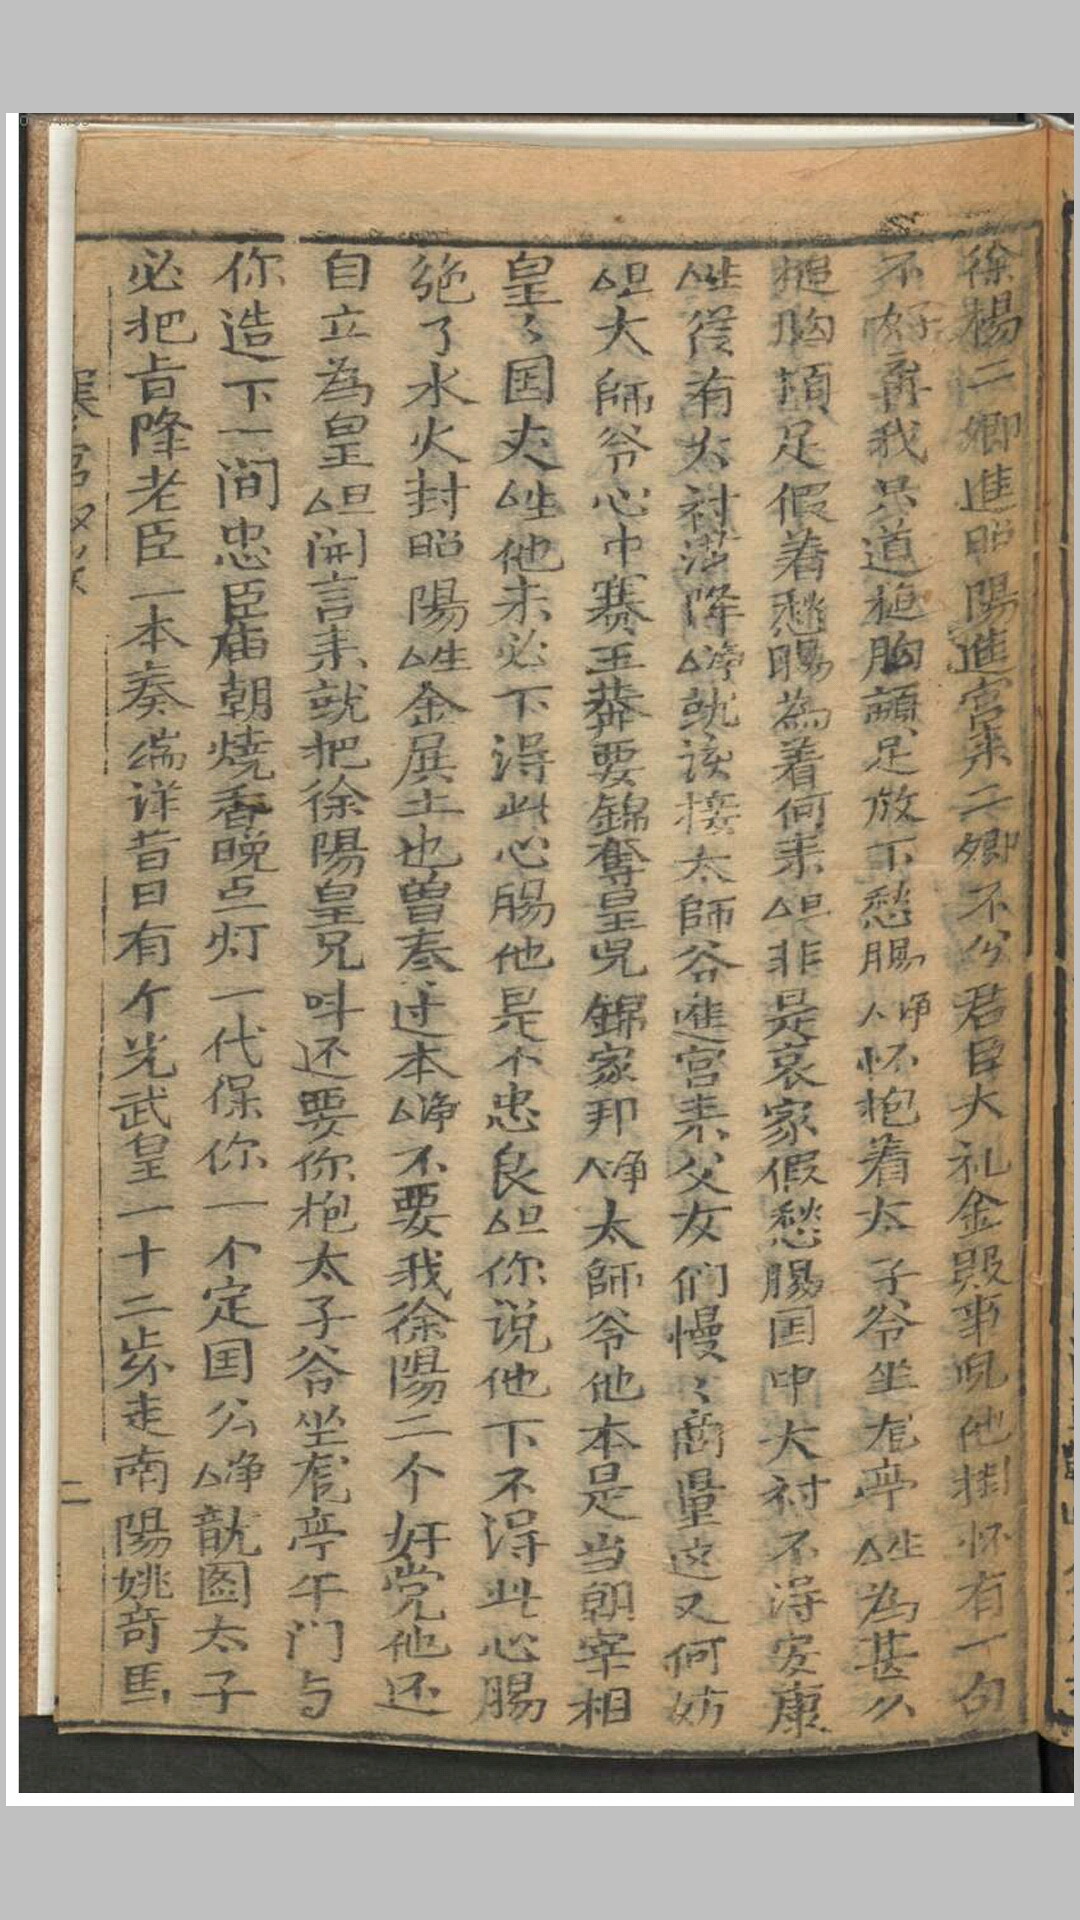 徐楊二卿進昭陽進宮来二卿不分君臣大礼金殿事況他掛怀有一句
不好哥我只道搥胸頓足放下愁腸 ㅅ净怀抱着太子爷坐龙亭 △生為甚么
搥胸頓足假着愁腸為着何来 △旦非是哀家假愁腸国中大村不得安康
△生從有大村 降 △净就該接太師爷進宮来父女们慢〻商量这又何妨
△旦大師爷心中赛王莽要錦奪皇兄錦家邦 ㅅ净太師爷他本是当朝宰相
皇〻国丈 △生他未必下得此心腸他是不忠良 △旦你说他下不得此心腸
絶了水火封昭陽 △生金展土也曽奏过本 △净不要我徐陽二个奸党他还
自立為皇 △旦開言来就把徐陽皇兄呌还要你抱太子爷坐龙亭午门与
你造下一间忠臣庙朝燒香晚点灯一代保你一个定国公 △净龍图太子
必把旨降老臣一本奏端详昔日有个光武皇一十二岁走南陽姚竒馬
二